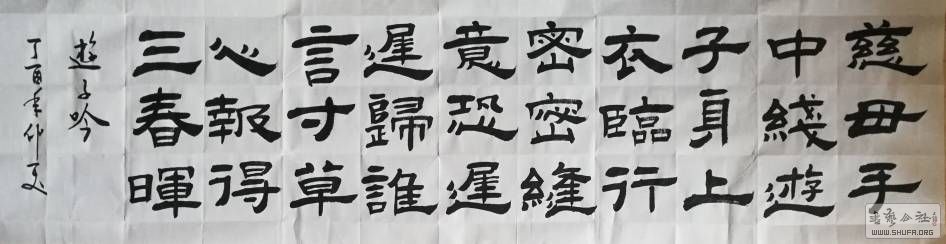 慈母手
中綫遊
子身上
衣臨行
密密縫
意恐遲
遲歸誰
言寸草
心報得
三春暉
遊子吟
丁酉年仲夏
書藝公社
WWW.SHUFA.ORG